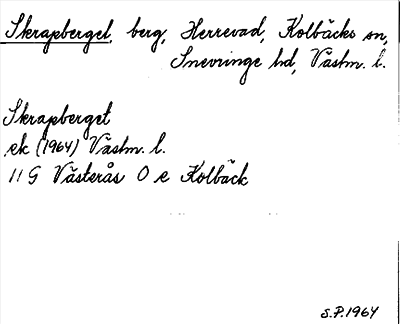 Skrapberget, berg, Herrevad, Kolbäcks sn,
Snevringe hd, Västm. l.
Skrapberget
ek (1964) Västm. l.
11 G Västerås O e Kolbäck
S.P. 1964